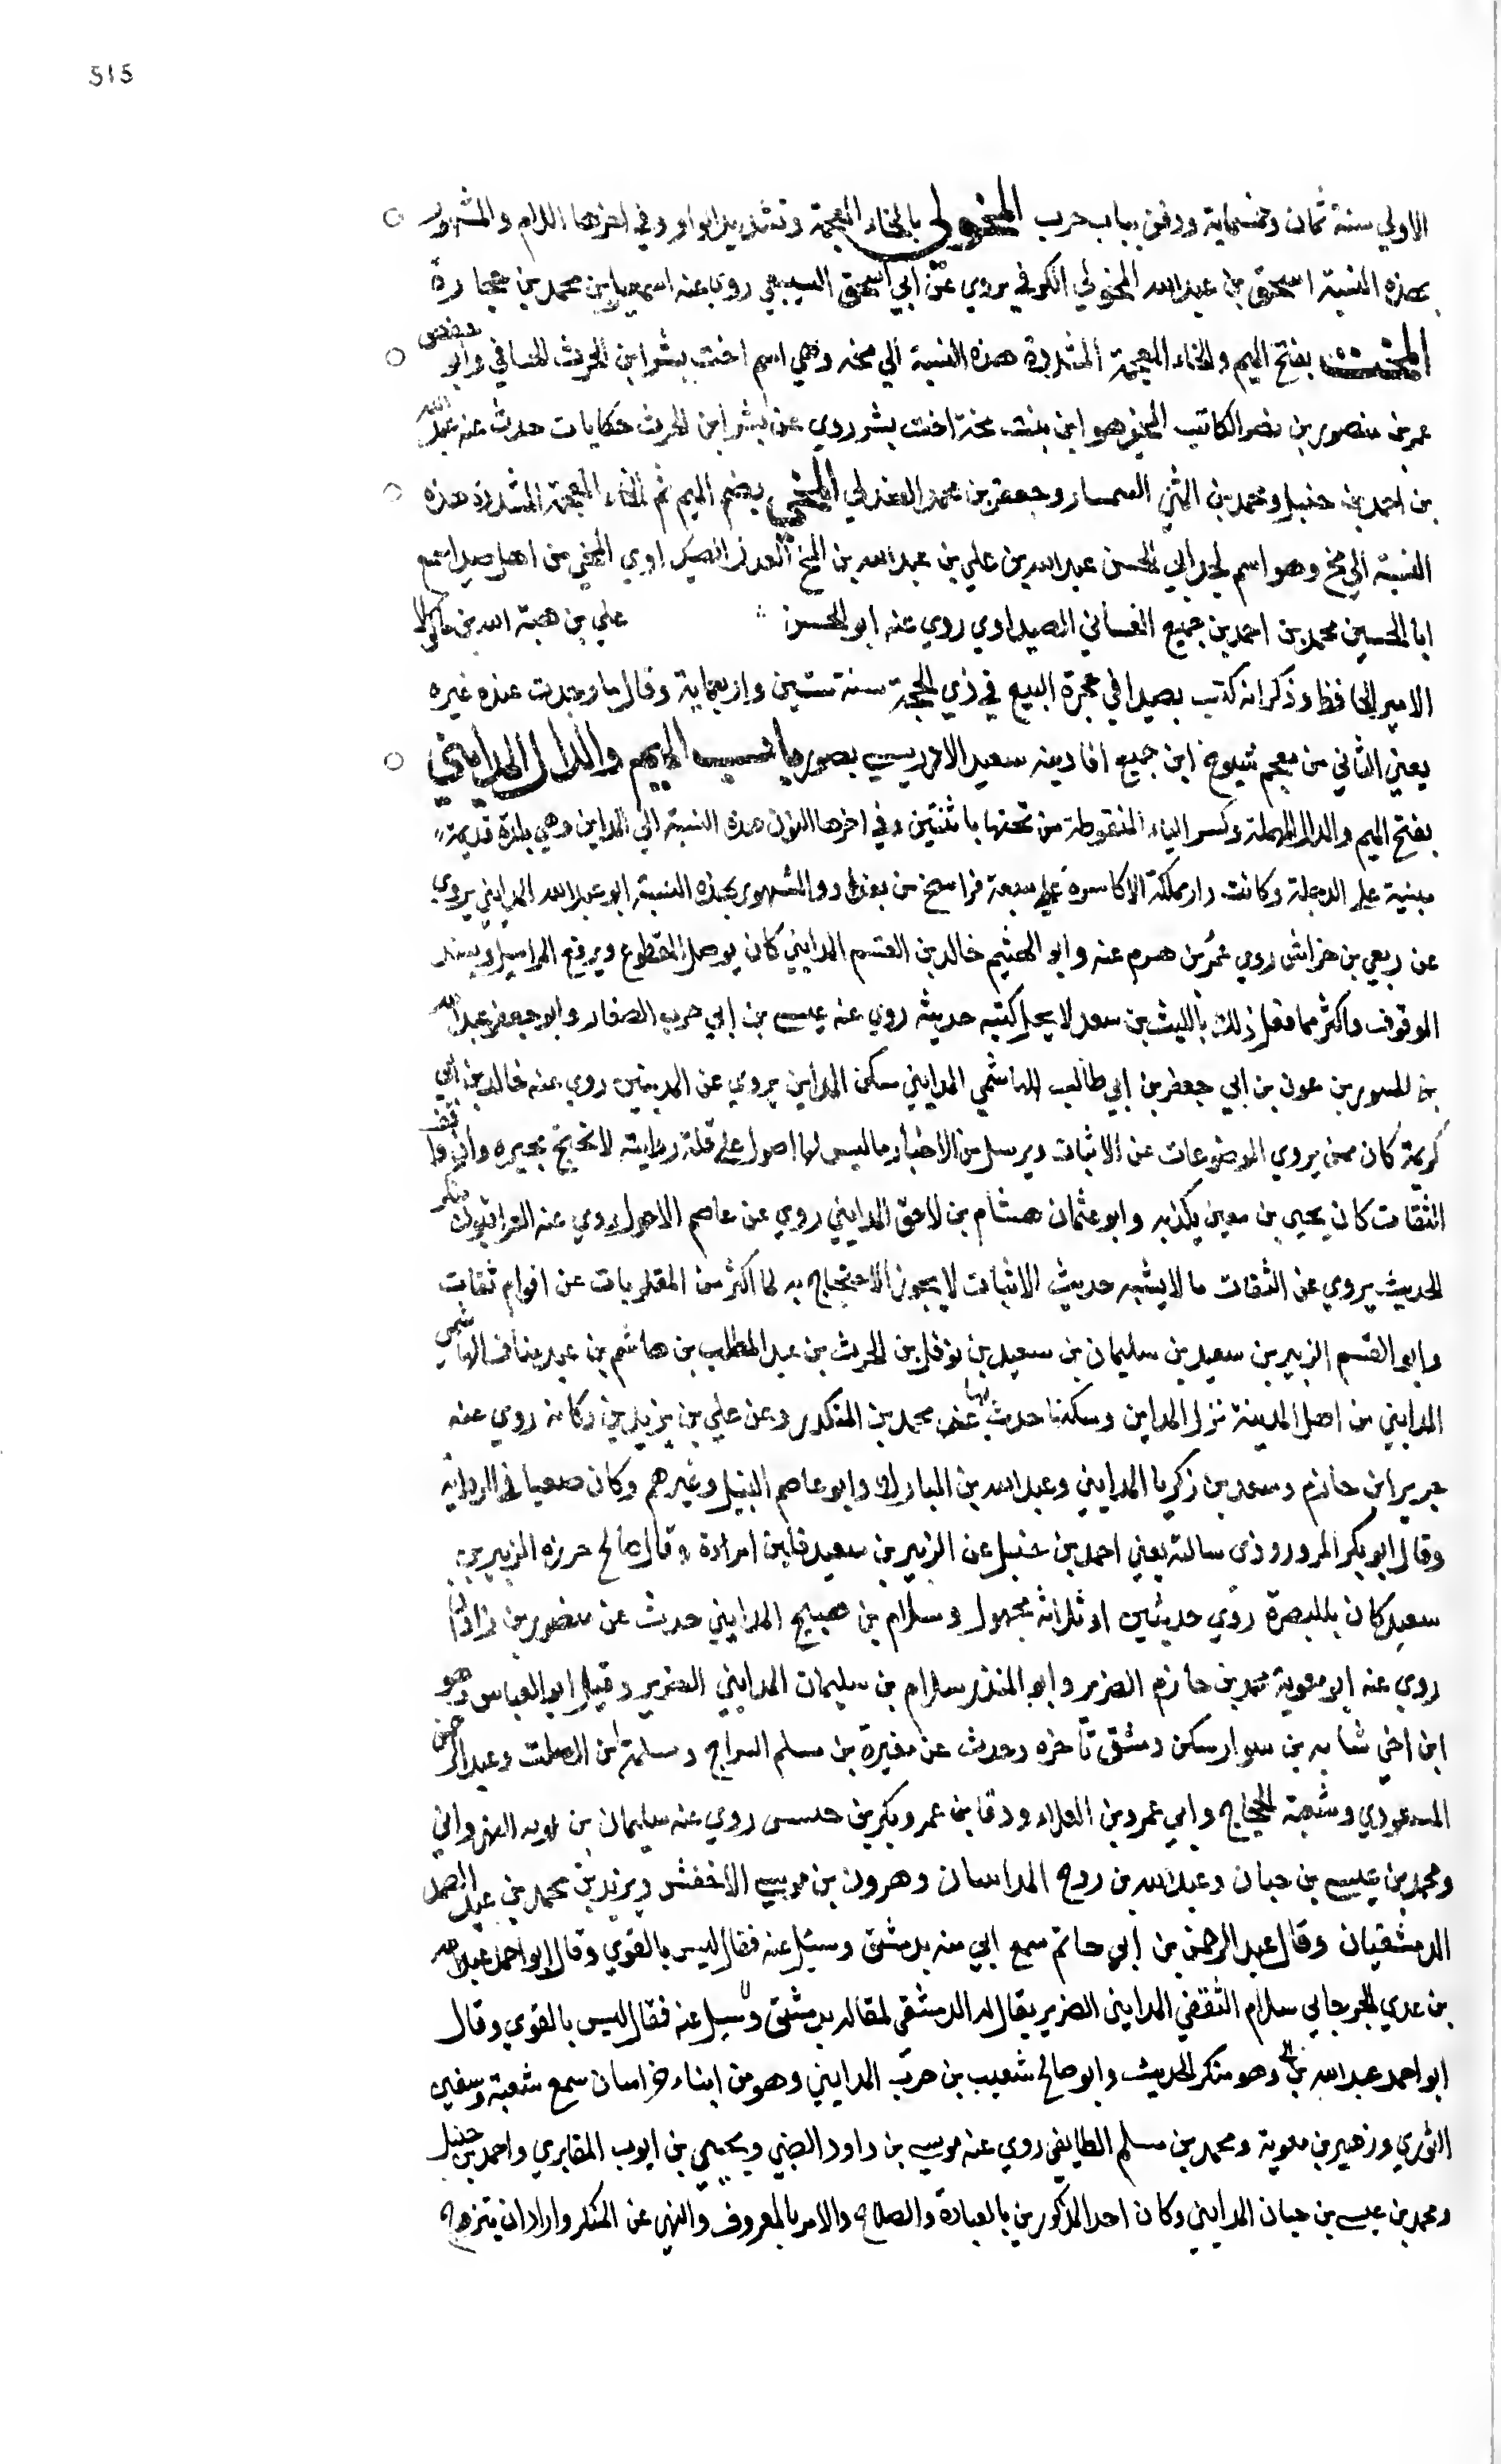 515
الاولي سنة ثمان وخمسماية ودفن بباب حرب المخولي بالخاء المعجمة وتشديد الواو وفي اخرها اللام والمشهور
بهذه النسبة اسحق بن عبدالله المخولي الكوفي يروي عن ابي اسحق السبيعي روي عنه اسمعيل بن محمد بن جحادة
المخي بفتح الميم والخاء المعجمة المشددة هذه النسبة الي مخه وهي اسم اخت بشر ابن الحرث الحافي وابو حفص
عمر بن منصور بن نصر الكاتب المخي هو ابن بنت مخة اخت بشر روي عن بشر ابن الحرث حكايات حدث عنه عبد الله
بن احمد بن حنبل ومحمد بن المثني السمسار وجعفر بن محمد الصندلي المخي بضم الميم ثم الخاء المعجمة المشددة هذه
النسبة الي مخ وهو اسم لجد ابي الحسن عبدالله بن علي بن عبدالله بن المخ العدل الصيداوي المخي من اهل صيدا سمع
ابا الحسين محمد بن احمد بن جميع الغساني الصيداوي روي عنه ابو الحسن علي بن هبة الله بن ماكولا
الامير الحافظ وذكر انه كتب بصيدا في حجرة البيع في ذي الحجة سنة ستين واربعماية وقال ما وجدت عنده غيره
يعني الثاني من معجم شيوخ ابن جميع افادنيه سعيد الادريسي بصور باب الميم والدال المدايني
بفتح الميم والدال المهملة وكسر الياء المنقوطة من تحتها باثنتين وفي اخرها النون هذه النسبة الي المداين وهي بلدة قديمة
مبنية علي الدجلة وكانت دار مملكة الاكاسرة علي سبعة فراسخ من بغداد والمشهور بهذه النسبة ابو عبد الله المدايني يروي
عن ربعي بن خراش روي عمر بن هرم عنه وابو الهثيم خالد بن القسم المدايني كان يوصل المقطوع ويرفع المراسيل ويسند
الموقوف واكثر مما فعل ذلك بالليث بن سعد لا يحل كتبه حديثه روي عنه عيسي بن ابي حرب الصفار وابو جعفر عبد الله
بن المسور بن عون بن ابي جعفر بن ابي طالب الهاشمي المدايني سكن المداين يروي عن المدينين روي عنه خالد بن ابي
كريمة كان ممن يروي الموضوعات عن الاثبات ويرسل من الاخبار ما ليس لها اصول علي قلة روايته لا يحتج بخبره وان وافق
الثقات كان يحيي بن معين يكذبه وابو عثمان هشام بن لاحق المدايني روي عن عاصم الاحول روي عنه العراقيون منكر
الحديث يروي عن الثقات ما لا يشبه حديث الاثبات لا يجوز الاحتجاج به لما اكثر من المقلوبات عن اقوام ثقات
وابو القسم الزبير بن سعيد بن سليمان بن سعيد بن نوفل بن الحرث بن عبد المطلب بن هاشم بن عبد مناف الهاشمي
المدايني من اهل المدينة نزل المداين وسكنها حدث بها عن محمد بن المنكدر وعن علي بن يزيد بن ركانه روي عنه
جرير ابن حازم وسعد بن زكريا المدايني وعبد الله بن المبارك وابو عاصم النبيل وغيرهم وكان ضعيفا في الرواية
وقال ابو بكر المروروذي سالته يعني احمد بن حنبل عن الزبير بن سعيد فلين امراده وقال صالح حرزه الزبير بن
سعيد كان بالبصرة روي حديثين او ثلاثه مجهول وسلام بن صبيح المدايني حدث عن منصور بن زاذان
روي عنه ابو معوية محمد بن حازم الضرير وابو المنذر سلام بن سليمان المدايني الضرير وقيل ابو العباس وهو
ابن اخي شبابه بن سوار سكن دمشق باخره وحدث عن مغيرة بن مسلم السراج ومسلمة ابن الصلت وعبد الرحمن
المسعودي وشعبة الحجاج وابي عمرو بن العلاء وورقا بن عمر وبكر بن حسس روي عنه سليمان بن توبه النهرواني
ومحمد بن عيسي بن حبان وعبد الله بن روح المدايينان وهرون بن موسي الاخفش ويزيد بن محمد بن عبد الصمد
الدمشقيان وقال عبد الرحمن بن ابي حاتم سمع ابي منه بدمشق وسئل عنه فقال ليس بالقوي وقال ابو احمد عبد الله
بن عدي الجرجاني سلام الثقفي المدايني الضرير يقال له الدمشقي لمقامه بدمشق وسيل عنه فقال ليس بالقوي وقال
ابو احمد عبد الله بن وهو منكر الحديث وابو صالح شعيب بن حرب المدايني وهو من ابناء خراسان سمع شعبة وسفين
الثوري وزهير بن معوية ومحمد بن مسلم الطايفي روي عنه موسي بن داود الضبي ويحيي بن ايوب المقابري واحمد بن حنبل
ومحمد بن عيسي بن حبان المدايني وكان احد المذكورين بالعبادة والصلاح والامر بالمعروف والنهي عن المنكر واراد ان يتزوج